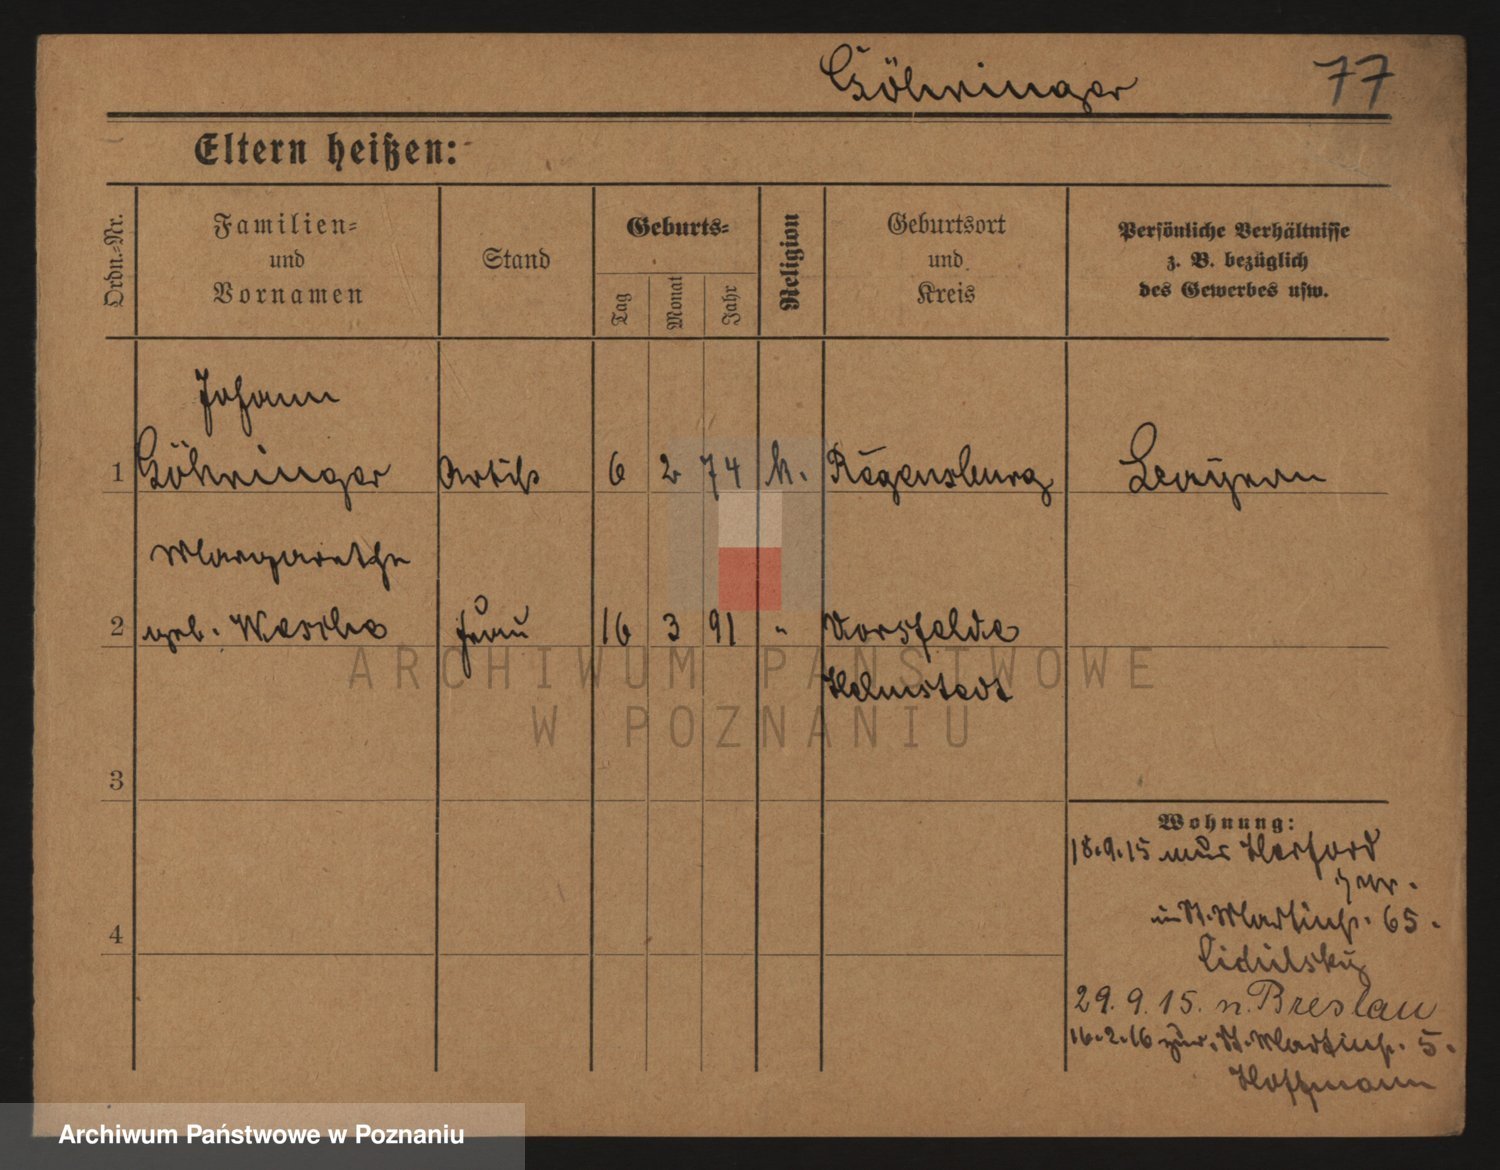 Göhringer 77
Eltern heißen:
Ordn.-Nr.
Familien-
und
Vornamen
Stand
Geburts-
Tag
Monat
Jahr
Religion
Geburtsort
und
Kreis
Persönliche Verhältnisse
z. B. bezüglich
des Gewerbes usw.
Johann
1 Göhringer Artist 6 2 74 k. Regensburg Bayern
Margarethe
2 geb. Frau 16 3 91 " Vorsfelde
Helmstedt
3
4
Wohnung:
18.9.15 aus Herford
St. Martinstr. 65.
29.9.15. n. Breslau
16.2.16 zur. St. Martinstr. 5.
Hoffmann
ARCHIWUM PAŃSTWOWE
W POZNANIU
Archiwum Państwowe w Poznaniu